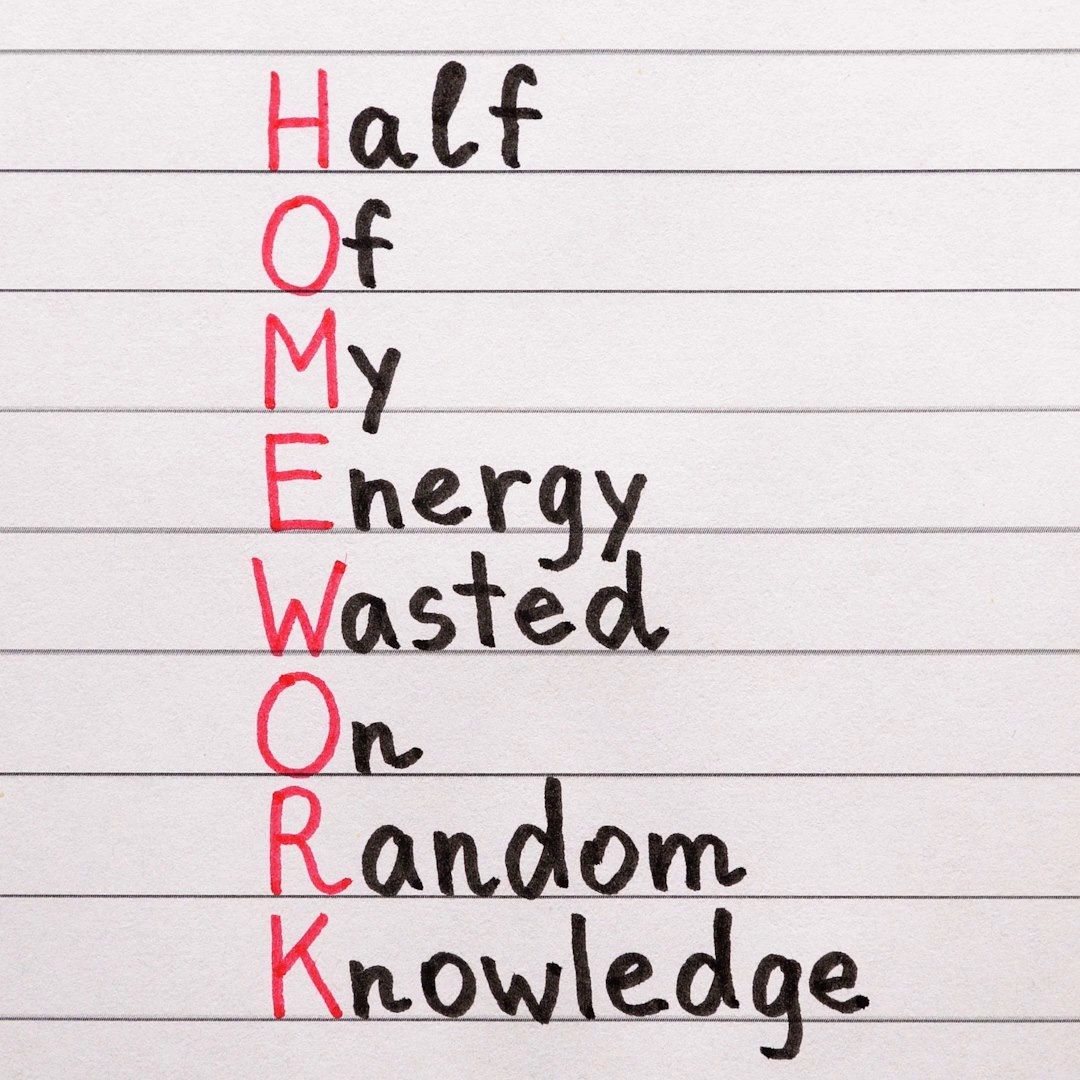 Half
Of
My
Energy
Wasted
On
Random
Knowledge